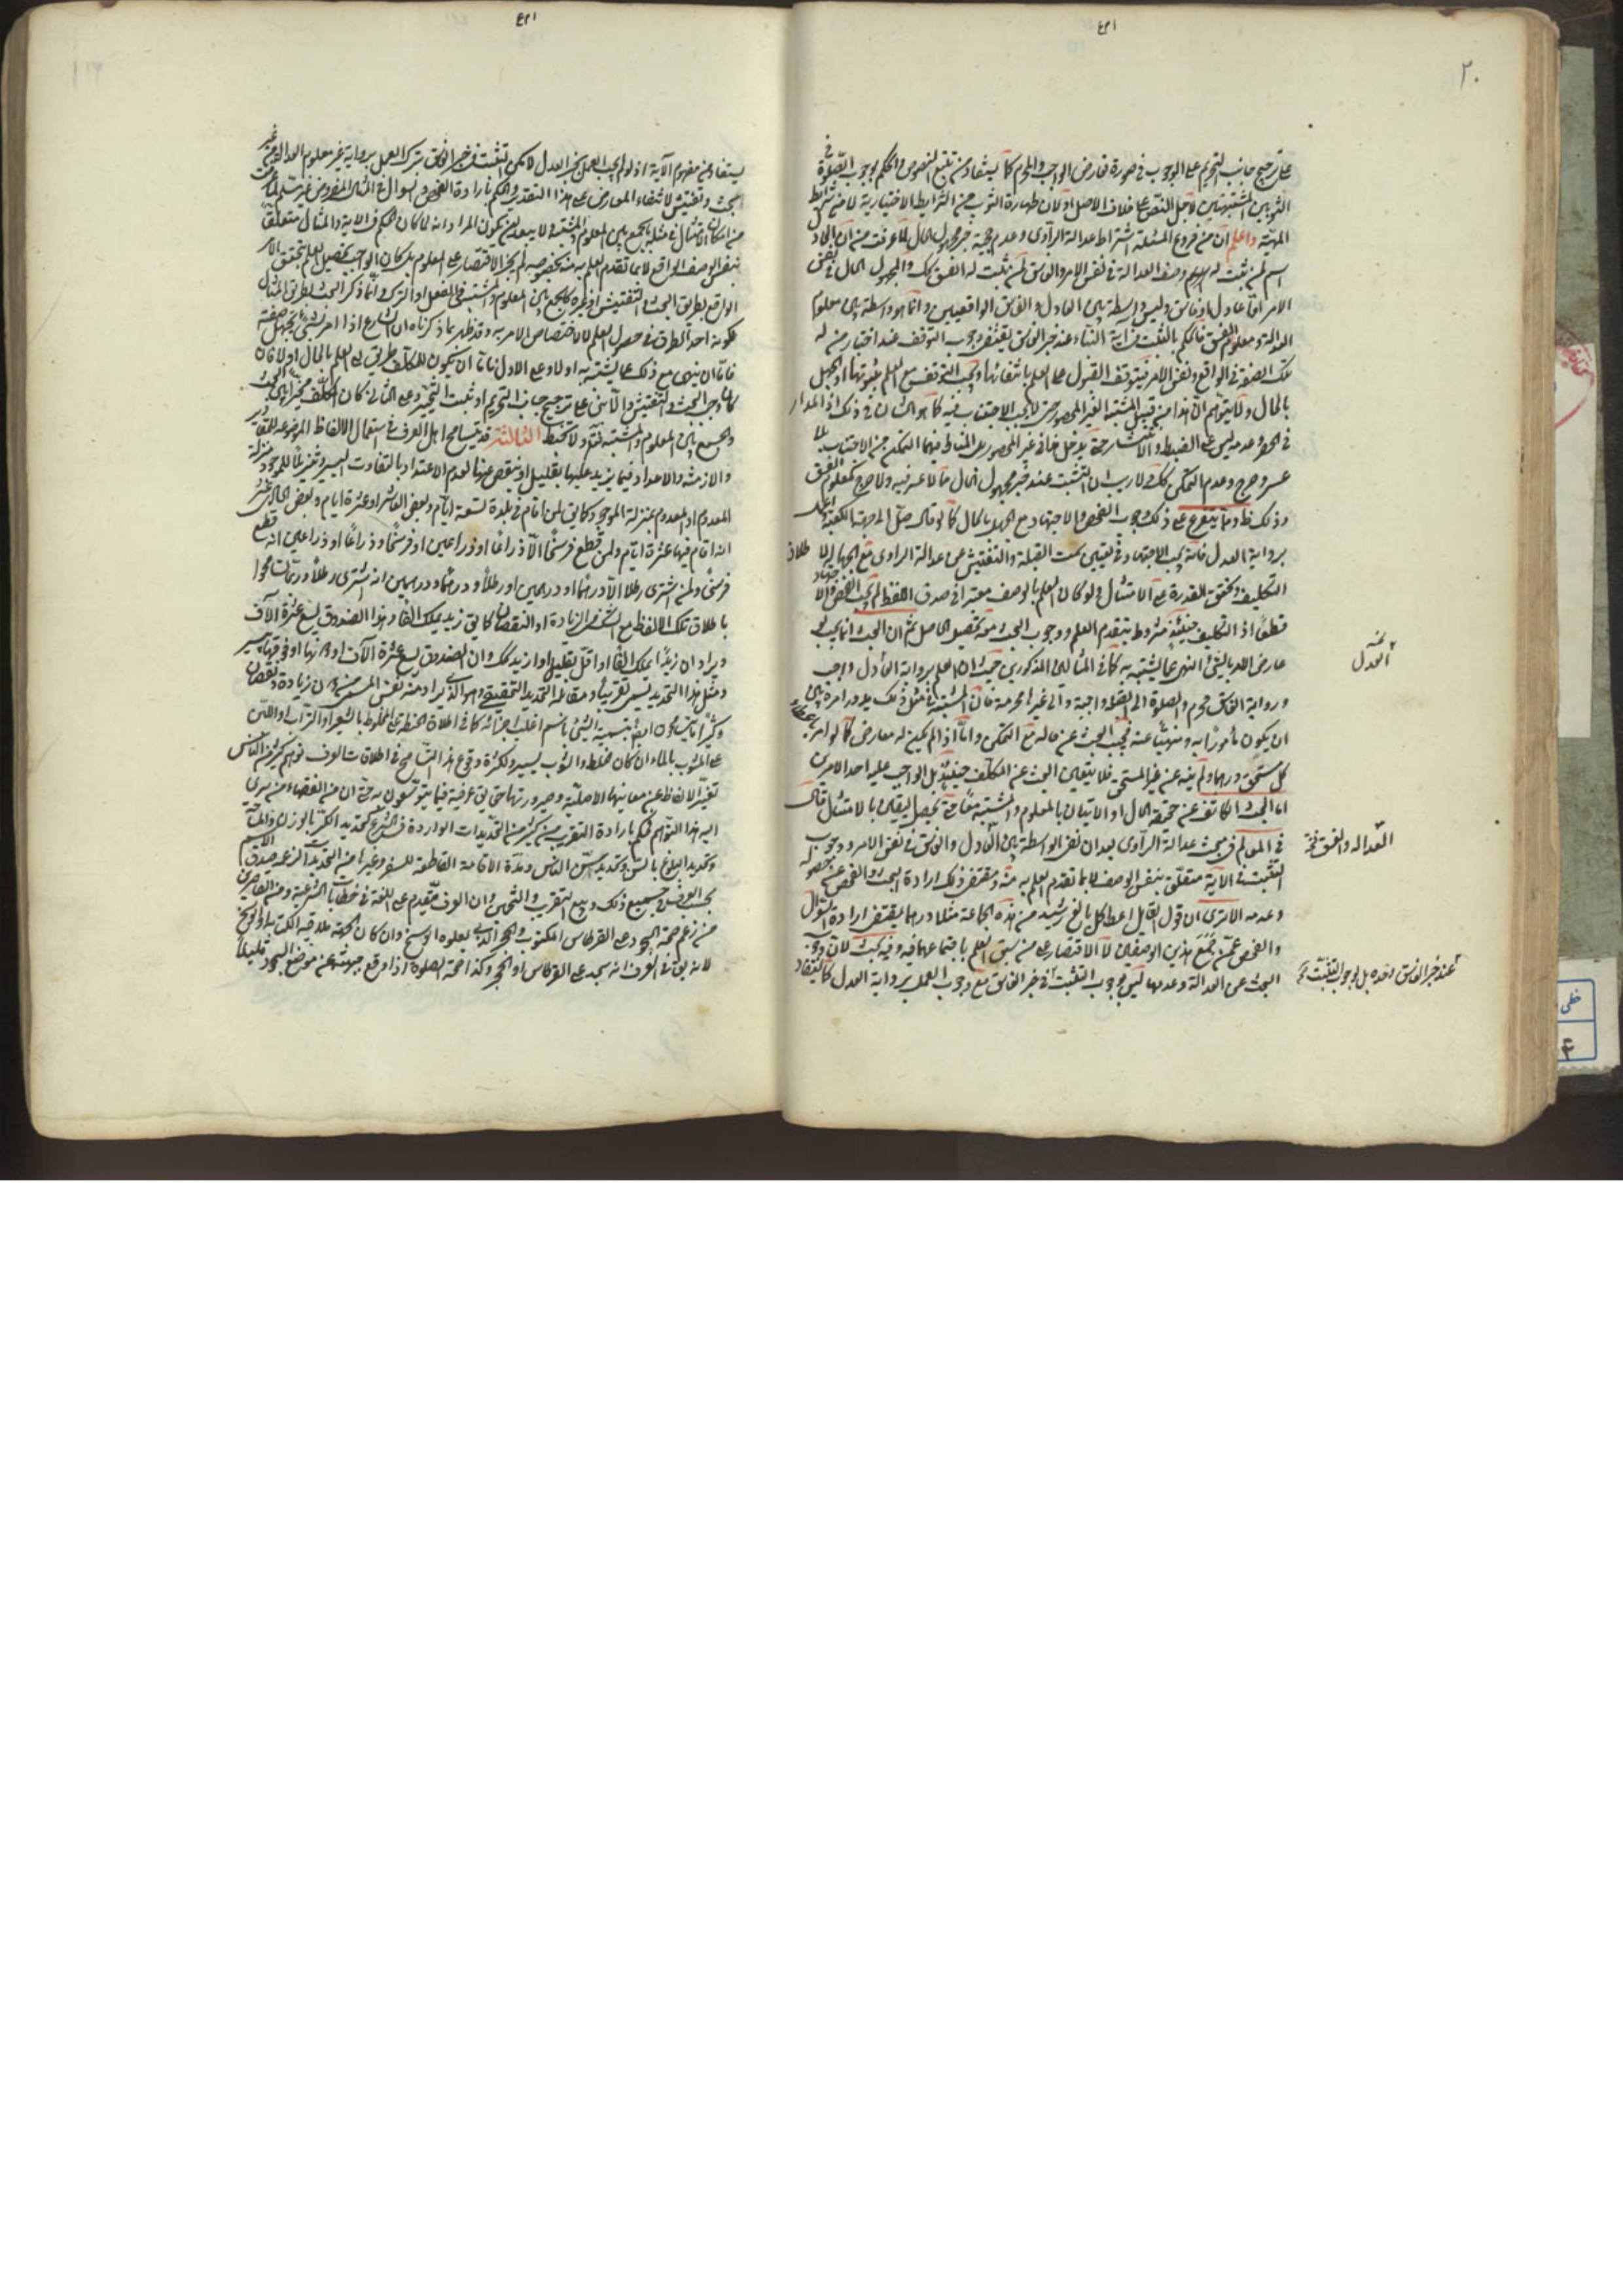 ٢٠
على ترجيح جانب التحريم على الوجوب في صورة تعارض الواجب والحرام كما يستفاد من تتبع النصوص والحكم بوجوب الصلوة في
الثوبين المشتبهين لاجل النص على خلاف الاصل او لان طهارة الثوب من الشرايط الاختيارية لا من شرايط
المهيّة واعلم ان من فروع المسئلة اشتراط عدالة الراوى وعدم حجية خبر مجهول الحال لما عرفت من ان العادل
اسم لمن ثبت له وصف العدالة في نفس الامر والفاسق لمن ثبت له الفسق كك والمجهول الحال في نفس
الامر امّا عادل او فاسق وليس واسطة بين العادل والفاسق الواقعيين وانما هو واسطة بين معلوم
العدالة ومعلوم الفسق فالحكم بالتثبت في آية النبأ عند خبر الفاسق يقتضى وجوب التوقف عند اخبار من له
تلك الصفة في الواقع ونفس الامر فيتوقف القبول على العلم بانتفائها ويجب التوقف مع العلم بثبوتها او الجهل
بالحال ولا يتوهم انّ هذا من قبيل المشتبه الغير المحصور حتى لا يجب الاجتناب فيه كما هو الشان في ذلك اذ المدار
في الحصر وعدمه ليس على الضبط و
عسر وحرج وعدم التمكن كك ولا ريب ان التثبت عند خبر مجهول الحال مما لا عسر فيه ولا حرج كمعلوم الفسق
وذلك ظ ومما يتفرع على ذلك وجوب الفحص والاجتهاد مع الجهل بالحال كما لو قال صلّ الى جهة الكعبة او اعمل
برواية العدل فانه يجب الاجتهاد في تعيين سمت القبلة والتفتيش عن عدالة الراوى مع الجهل لاطلاق
التكليف وتحقق القدرة على الامتثال ولو كان العلم بالوصف معتبرا في صدق اللفظ لم يجب الفحص والاجتهاد
قطعًا اذ التكليف حينئذ مشروط بتقدم العلم ووجوب البحث معه تحصيل الحاصل ثم ان البحث انما يجب لو
عارض الامر بالشئ النهى عما يشتبه به كما في المثالين المذكورين حيث ان العمل برواية العادل واجب
وبرواية الفاسق محرم والصلوة الى القبلة واجبة والى غيرها محرمة فان المشتبه في مثل ذلك يدور امره بين
ان يكون مأمورًا به ومنهيّا عنه فيجب البحث عن حاله مع التمكن وامّا اذا لم يكن له معارض كما لو امر باعطاء
كل مستحق درهما ولم ينه عن غير المستحق فلا يتعين البحث عن المكلف حينئذ بل الواجب عليه احد الامرين
اما البحث الكاشف عن حقيقة الحال او الاتيان بالمعلوم والمشتبه معًا حتى يحصل اليقين بالامتثال قال
في المعالم في بحث عدالة الراوى بعد ان نفى الواسطة بين العادل والفاسق في نفس الامر ووجوب
التثبت في الاية متعلق بنفس الوصف لا بما تقدم العلم به منه ومقتضى ذلك ارادة البحث والفحص عن حصوله
وعدمه الا ترى ان قول القايل اعط كل بالغ رشيد من هذه الجماعة مثلا درهما يقتضى ارادة السؤال
والفحص عمّن جمع هذين الوصفين لا الاقتصار على من سبق العلم باجتماعهما فيه وفيه بحث لان وجوب
البحث عن العدالة وعدمها ليس لوجوب التثبت في خبر الفاسق مع وجوب العمل برواية العدل كما يستفاد
العدل
العدالة والفسق
عند خبر الفاسق وحده بل لوجوب التثبت
يستفاد من مفهوم الآية اذ لو لم يجب العمل بخبر العدل لامكن التثبت في خبر الفاسق بترك العمل برواية غير معلوم العدالة من غير
بحث وتفتيش لانتفاء المعارض على هذا التقدير والحكم بارادة الفحص والسؤال في المثال المفروض غير مسلّم لما عرفت
من امكان الامتثال في مثله بالجمع بين المعلوم والمشتبه ولا يبعد ان يكون المراد انه لما كان الحكم في الاية والمثال متعلقا
بنفس الوصف الواقع لا بما تقدم العلم به منه بخصوصه لم يجز الاقتصار على المعلوم بل كان الواجب تحصيل العلم بتحقق الامر
الواقع بطريق البحث والتفتيش او غيره كالجمع بين المعلوم والمشتبه في الفعل او الترك وانما ذكر البحث بطريق المثال
لكونه احد الطرق في حصول العلم لا لاختصاص الامر به وقد ظهر بما ذكرناه ان الشارع اذا امر بشئ تجهل صفته
فامّا ان ينهى مع ذلك عما يشتبه به او لا وعلى الاول فامّا ان يكون للمكلف طريق الى العلم بالحال او لا فان
كان وجب البحث والتفتيش والا بنى على ترجيح جانب التحريم او ثبت التخيير وعلى الثانى كان المكلف مخيرا بين البحث
والجمع بين المعلوم والمشتبه فتأمل ولا تخبط الثالثة قد يتسامح اهل العرف في استعمال الالفاظ الموضوعة للمقادير
والازمنة والاعداد فيما يزيد عليها بقليل او ينقص عنها لعدم الاعتداد بالتفاوت اليسير وتنزيلا للموجود منزلة
المعدوم او المعدوم بمنزلة الموجود كما يق لمن اقام في بلدة تسعة ايام وبعض العاشر او عشرة ايام وبعض الحادى عشر
انه اقام فيها عشرة ايام ولمن قطع فرسخًا الّا ذراعًا او ذراعين او فرسخًا وذراعًا او ذراعين انه قطع
فرسخًا ولمن اشترى رطلا الّا درهمًا او درهمين او رطلًا ودرهمًا ودرهمين انه اشترى رطلًا وربما تسامحوا
باطلاق تلك الالفاظ مع الزيادة او النقصان كما يق زيد يملك الفا وهذا الصندوق يسع عشرة الآف
ويراد ان زيدًا يملك الفًا او اقلّ بقليل او ازيد كك وان الصندوق يسع عشرة الآف او ما دونها او فوقها بيسير
ومثل هذا التحديد يسمى تقريبًا ومقابله التحديد التحقيقى وهو الذى يراد منه نفس المسمى من دون زيادة ونقصان
وكثيرا ما يتسامحون ايضا بتسمية الشئ باسم اغلب اجزائه كما في اطلاق الحنطة على المخلوط بالشعير او التراب واللبن
على المشوب بالماء ان كان الخلط والشوب بيسير ولكثرة وقوع هذا التسامح في اطلاقات العرف توهم كثير من الناس
تغيّر الالفاظ عن معانيها الاصلية وصيرورتها حقايق عرفية فيما يتوسّعون به حتى ان من الفقهاء من سرى
اليه هذا التوهم فحكم بارادة التقريب من كثير من التحديدات الواردة في الشرع كتحديد الكر بالوزن والمساحة
وتحديد البلوغ بالسن وتحديد سن الياس ومدة الاقامة القاطعة للسفر وغيرها من التحديدات لزعمه صدق الاسم
بحسب العرف في جميع ذلك وبيع التقريب والتخمين وان العرف مقدم على اللغة في خطابات الشرعية ومن القاصرين
من زعم صحة السجود على القرطاس المكتوب والحجر الذى يعلوه الوسخ وان كان الجبهة ملاقية الكتابة والوسخ
لانه يق في العرف انه سجد على القرطاس او الحجر وكذا صحة الصلوة اذا وقع جبهته عن موضع السجود قليلًا